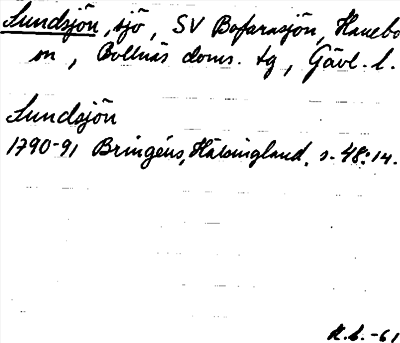 Sundsjön, sjö, SV Bofarasjön, Hanebo
sn, Bollnäs doms. tg, Gävl. l.
Sundsjön
1790-91 Bringéus, Hälsingland, s. 48:14.
K.L. -61